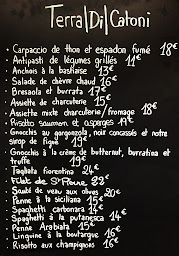 Terra|Di|Catoni
• Carpaccio de thon et espadon fumé 18€
• Antipasti de légumes grillés 11€
• Anchois à la bastiaise 13€
• Salade de chèvre chaud 16€
• Bresaola et burrata 17€
• Assiette de charcuterie 15€
• Assiette mixte charcuterie/fromage 18€
• Risotto saumon et asperges 19€
• Gnocchis au gorgonzola, noir concassés et notre
sirop de figue 19€
• Gnocchis à la crème de butternut, burratina et
truffe 19€
• Tagliata fiorentina 24€
• Filet de St Pierre 29€
• Sauté de veau aux olives 20€
• Penne à la siciliana 15€
• Spaghetti carbonara 14€
• Spaghetti à la putanesca 14€
• Penne Arabiata 15€
• Linguine à la boutargue 16€
• Risotto aux champignons 16€